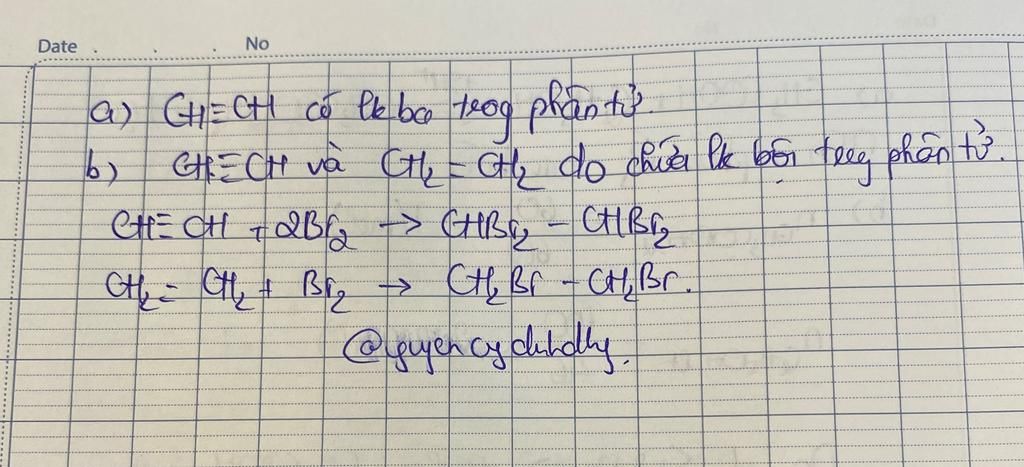 Date . . . No
a) CH≡CH có lk ba trog phân tử.
b) CH≡CH và CH₂=CH₂ do chứa lk bội trog phân tử.
CH≡CH + 2Br₂ → CHBr₂ - CHBr₂
CH₂=CH₂ + Br₂ → CH₂Br - CH₂Br.